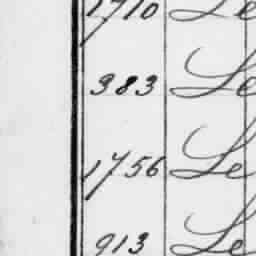 1710 Le
383 Le
1756 Le
913 Le